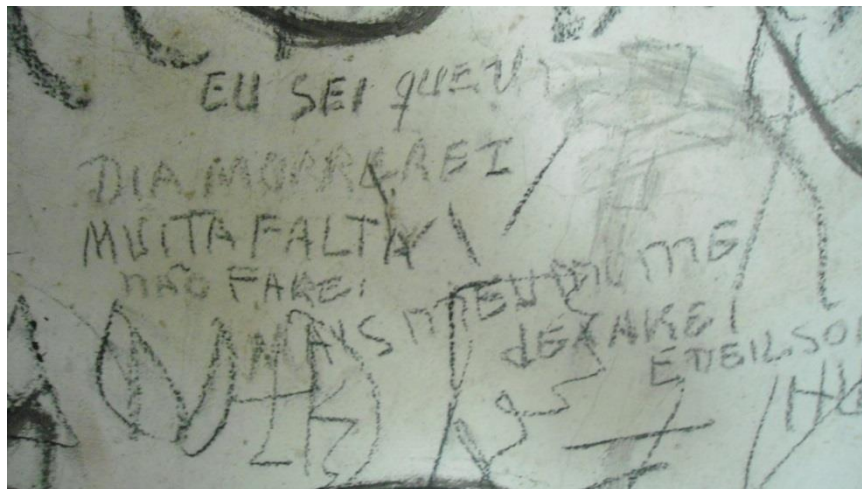 EU SEI QUE U
DIA MORREREI
MUITA FALTA
NÃO FAREI
MAIS MEU NOME
DEXAREI
EDEILSO